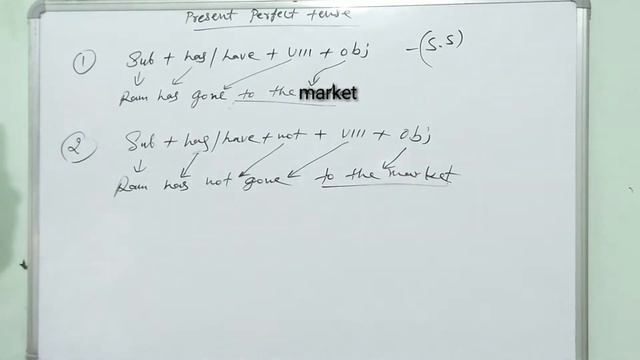 Present Perfect tense
① Sub + has/have + VIII + obj -(S.S)
Ram has gone to the market
② Sub + has/have + not + VIII + obj
Ram has not gone to the market